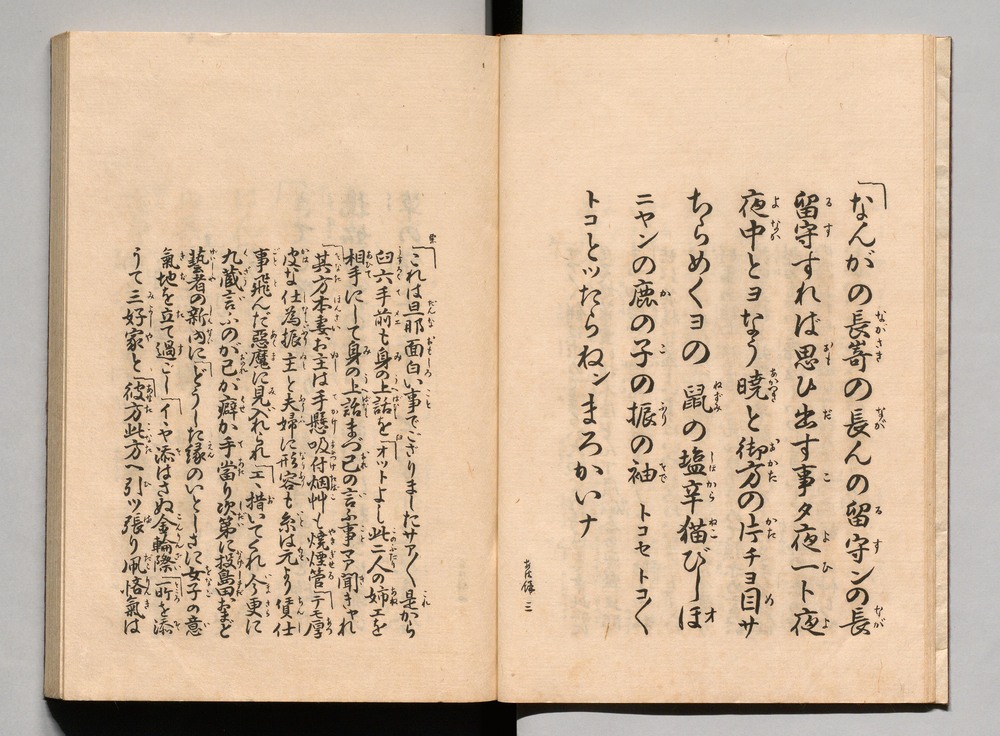 「なんがの長嵜の長んの留守ンの長
留守すれは思ひ出す事タ夜一ト夜
夜中とヨなう暁と御方の片チヨ目サ
ちらめくヨの 鼠の塩辛猫びしほ
ニヤンの鹿の子の振の袖 トコセトコ〱
トコとッたらねンまろかいナ
三
「これは旦那面白い事でごさりましたサア〱是から
臼六手前も身の上話を「オットよし此二人の姉エを
相手にして身の上話まづ己の言ふ事マア聞きやれ
「其方本妻お主は手懸吸付烟艸も煙管「テモ厚
皮な仕為振主と夫婦に形容も糸は元より賃仕
事飛んだ惡魔に見入れられ「エヽ措いてくれ今更に
九蔵言ふのか己が癖か手當り次第に投島田おまど
藝者の新内に「どうした縁のいとしさに女子の意
氣地を立て過ごし「イヤ添はさぬ金輪際「一町を添
うて三好家と「彼方此方へ引ッ張り悋氣は